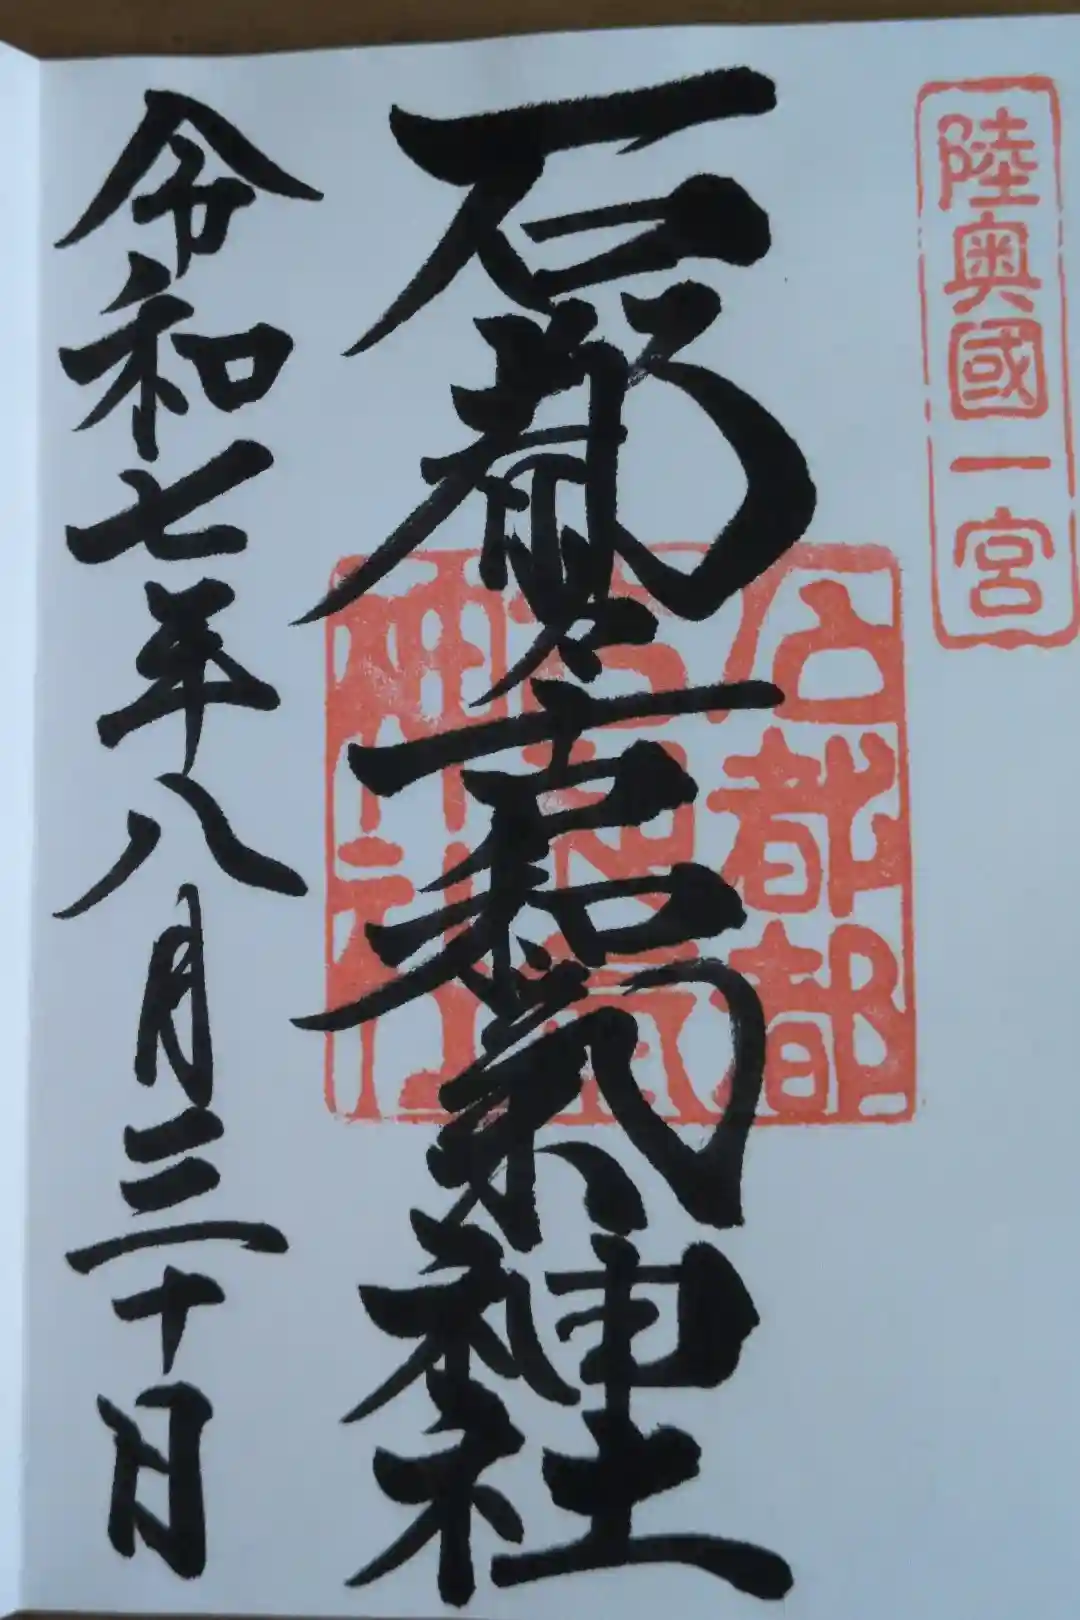 陸奥國一宮
石都々古和氣神社
石都都
古和氣
令和七年八月三十日